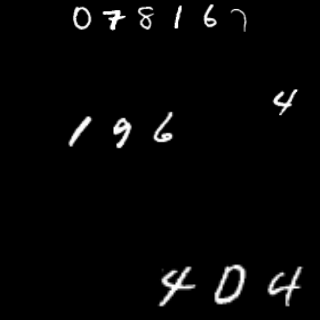 078167
4
196
404